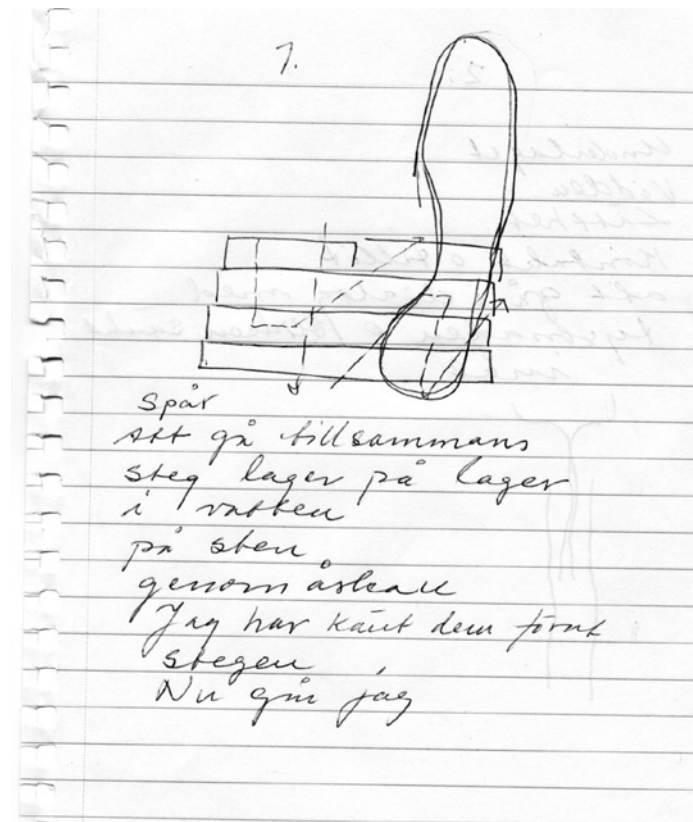 1.
Spår
att gå tillsammans
steg lager på lager
i vatten
på sten
genom
Jag har känt dem förut
stegen
Nu går jag